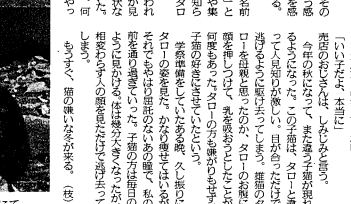 その
を感
う感
名前
」と
や集
タロ
われ
状な
、何
やっ
「いい子だよ、本当に」
売店のおじさんは、しみじみと言う。
今年の秋になって、また違う子猫が現れ
るようになった。この子猫は、タローと違
って人見知りが激しい。目が合っただけで
逃げるように駆け去ってしまう。雄猫のタ
ローを母親と思ったのか、タローのお腹に
顔を押しつけて、乳を吸おうとしたことが
何度もあった。タローの方も嫌がりもせず
子猫の好きにさせていたという。
学祭準備をしていたある晩、久し振りに
タローの姿を見た。かなり痩せてはいるが
それでもやはり屈託のないあの瞳で、私の
前を通り過ぎていった。子猫の方は毎日の
ように見かける。体は幾分大きくなったが、
相変わらず人の顔を見ただけで逃げ去って
しまう。
もうすぐ、猫の嫌いな冬が来る。(枝)